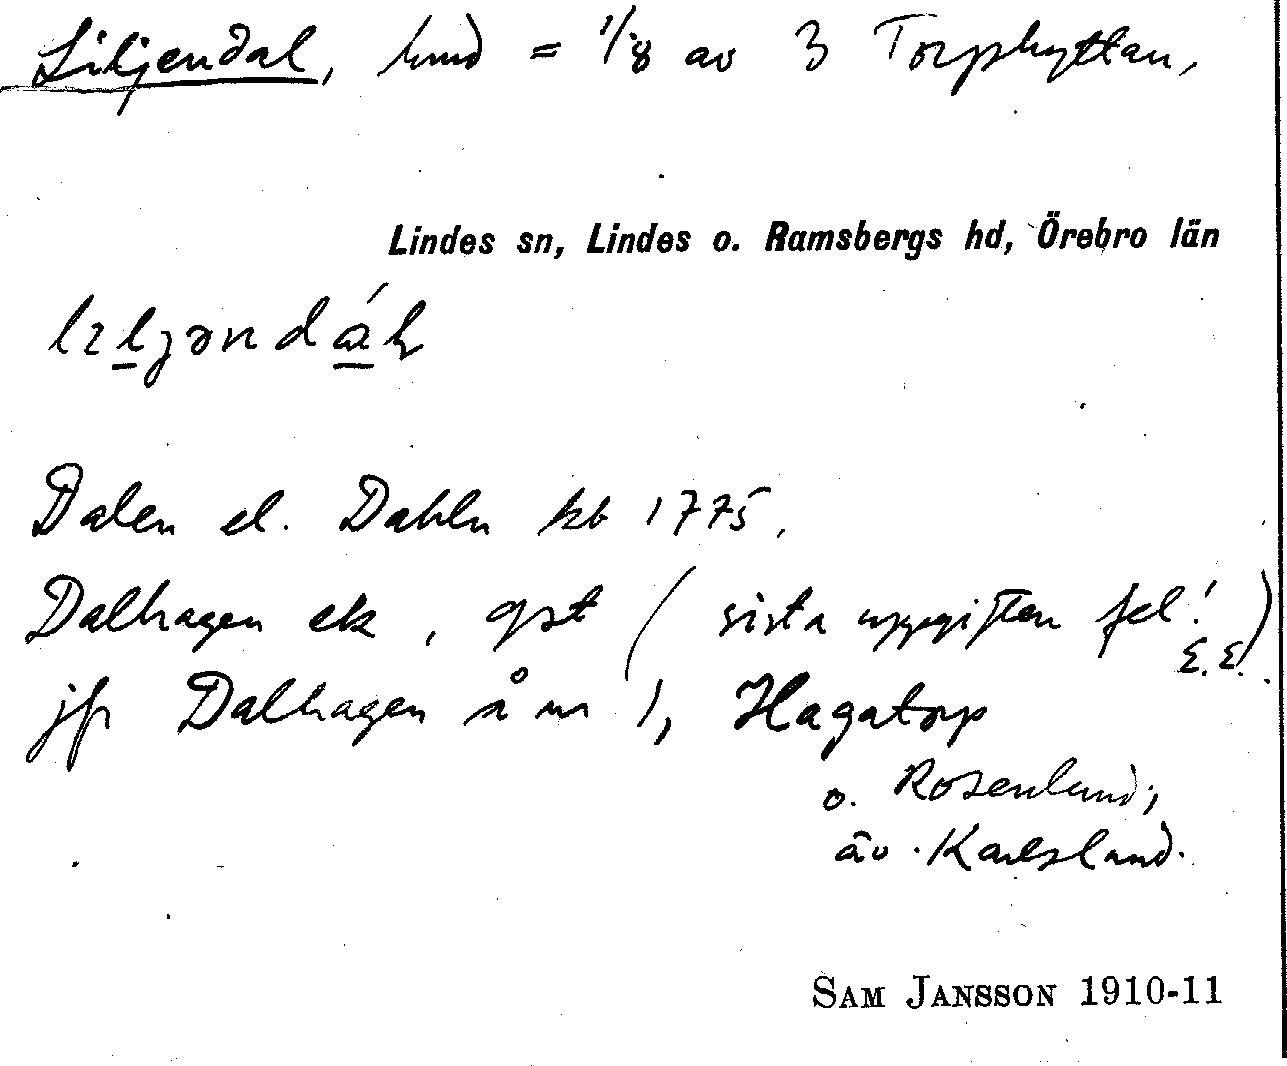 Liljendal, hmd = 1/8 av 3 Torphyttan,
Lindes sn, Lindes o. Ramsbergs hd, Örebro län
Dalen el. Dahln kb 1775.
Dalhagen ek, gst (sista uppgiften fel! E.E.)
jfr Dalhagen å nr 1, Hagatorp
o. Rosenlund;
äv. Karlslund.
SAM JANSSON 1910-11